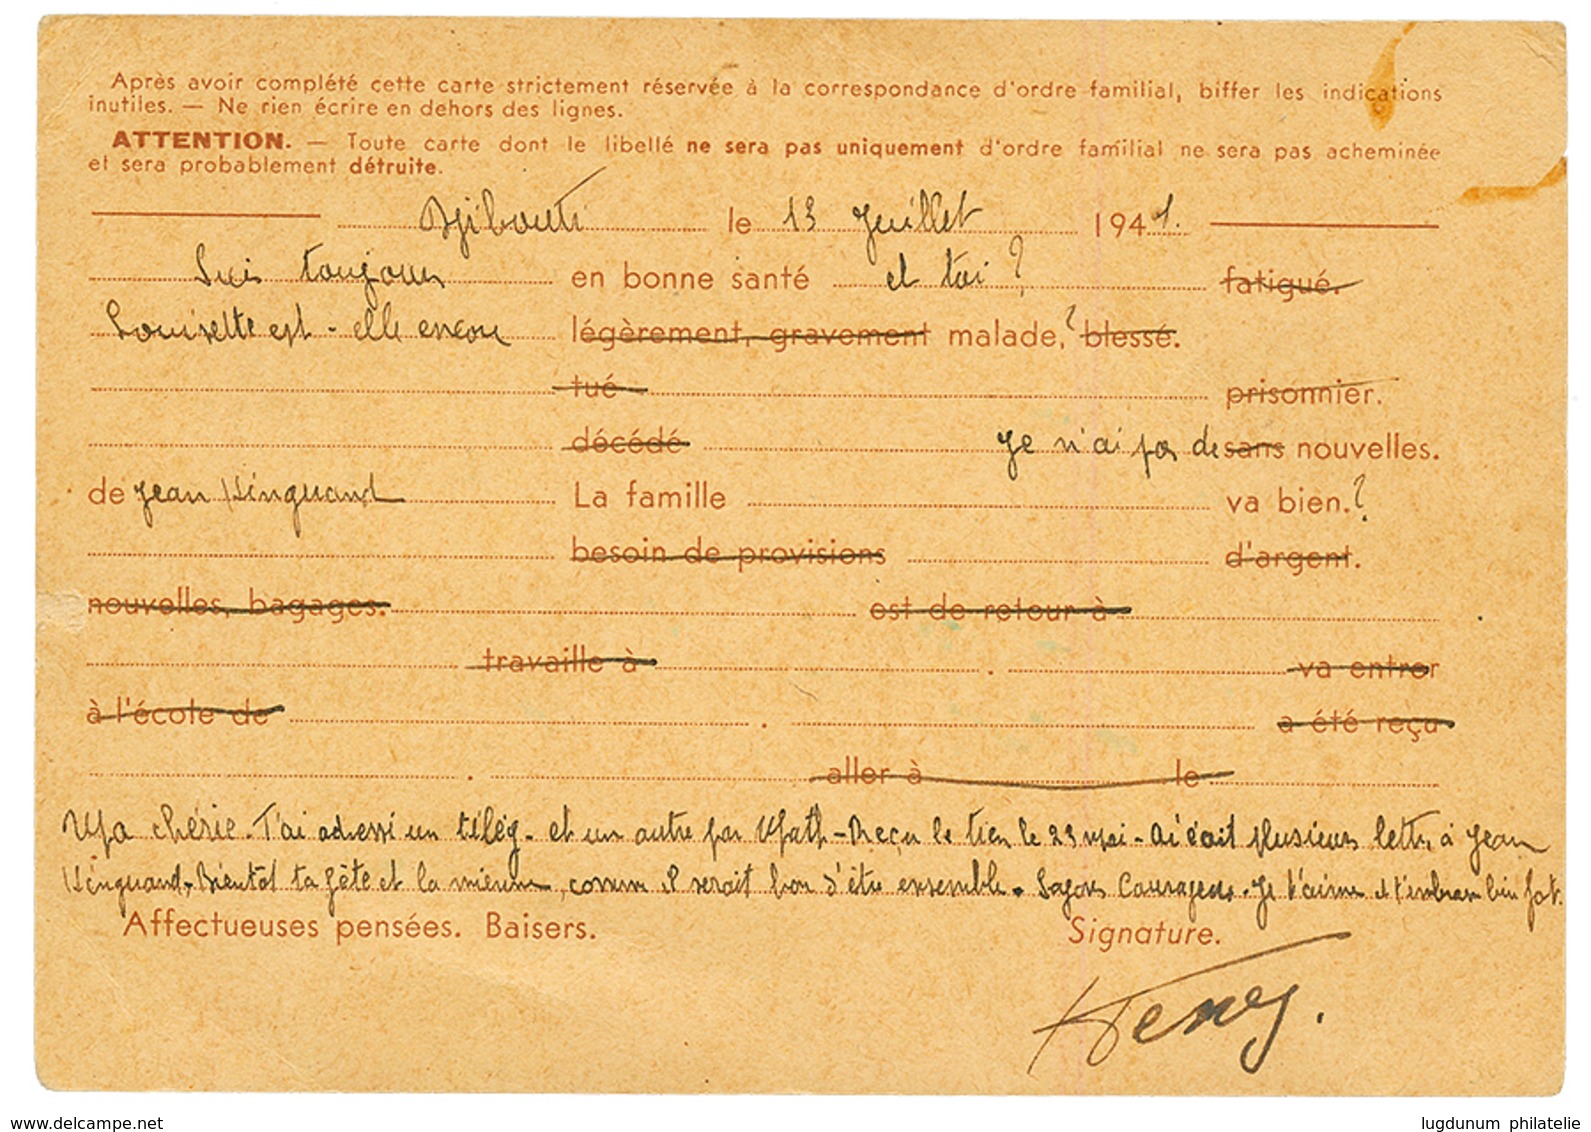 Après avoir complété cette carte strictement réservée à la correspondance d'ordre familial, biffer les indications
inutiles. — Ne rien écrire en dehors des lignes.
ATTENTION. — Toute carte dont le libellé ne sera pas uniquement d'ordre familial ne sera pas acheminée
et sera probablement détruite.
Djibouti le 13 Juillet 1941.
Suis toujours en bonne santé et toi ? fatigué.
Louisette est-elle encore légèrement, gravement malade, ? blessé.
tué prisonnier.
décédé Je n'ai pas de sans nouvelles.
de Jean Hinguand La famille va bien. ?
besoin de provisions d'argent.
nouvelles, bagages. est de retour à
travaille à . va entrer
à l'école de . a été reçu
. aller à le
Ma chérie - T'ai adressé un télég - et un autre par - Reçu le tien le 23 mai - Ai écrit plusieurs lettres à Jean
Hinguand. Bientôt ta fête et la mienne, comme il serait bon d'être ensemble. Soyons courageux - Je t'aime et t'embrasse bien fort.
Affectueuses pensées. Baisers. Signature.
Henry.
www.delcampe.net
lugdunum philatelie